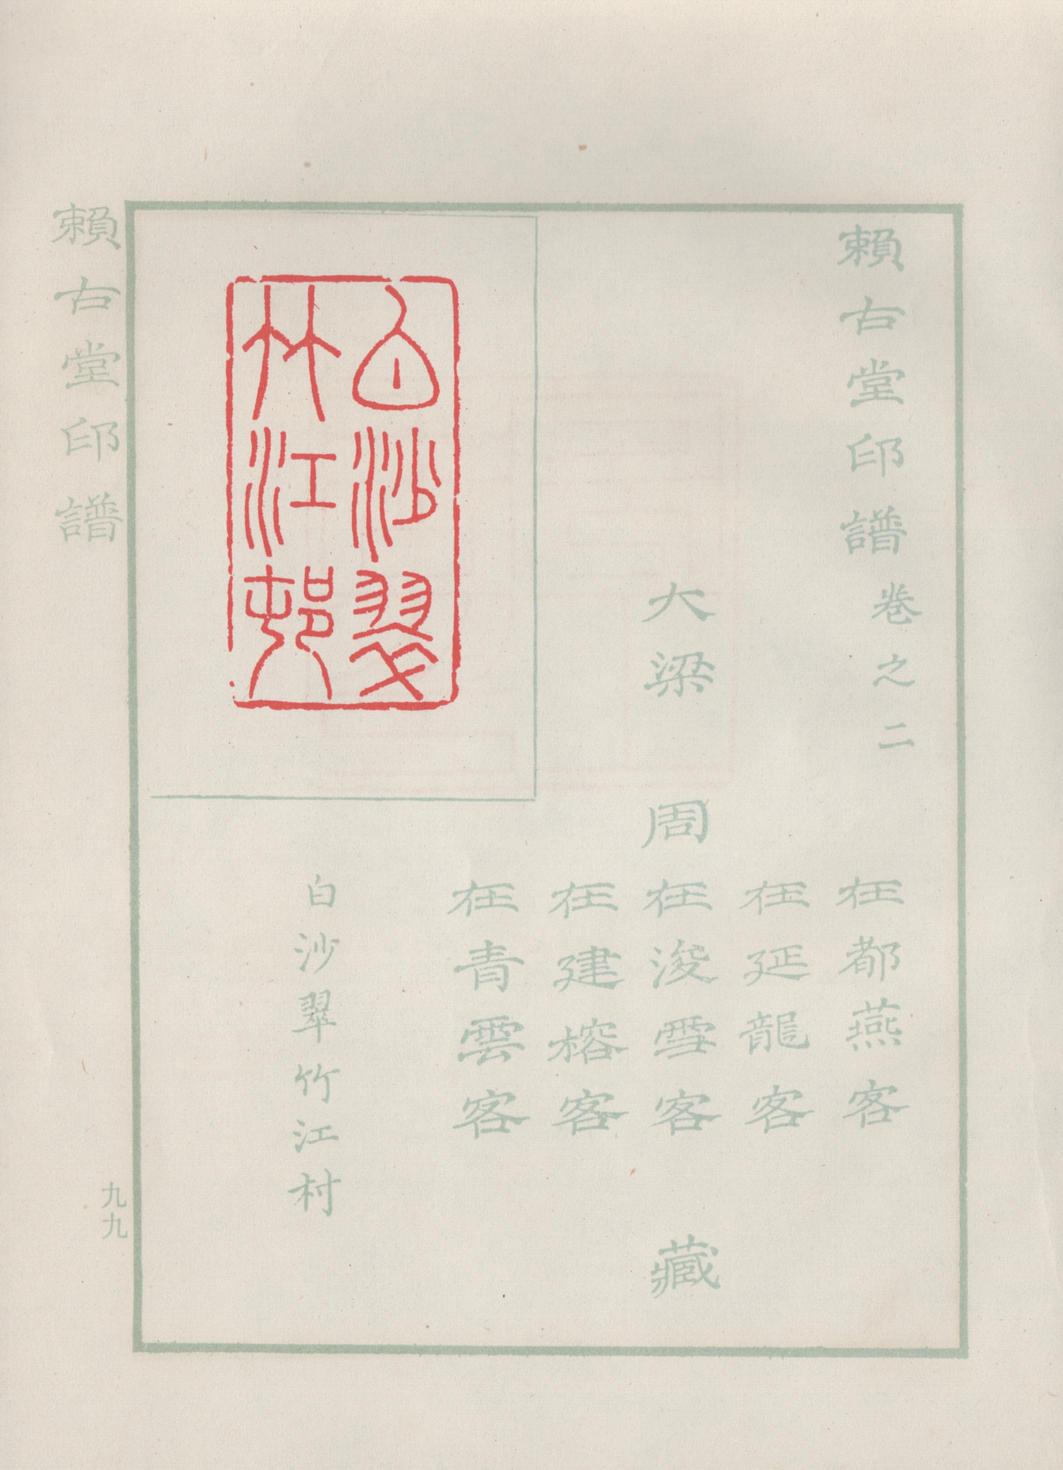 賴古堂印譜卷之二
大梁 周 在都燕客 在延龍客 在浚雪客 在建榕客 在青雲客 藏
白沙翠
竹江邨
白沙翠竹江村
賴古堂印譜
九九